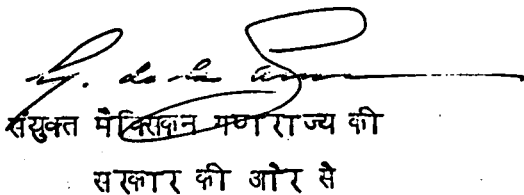 संयुक्त मैक्सिकन गणराज्य की
सरकार की ओर से